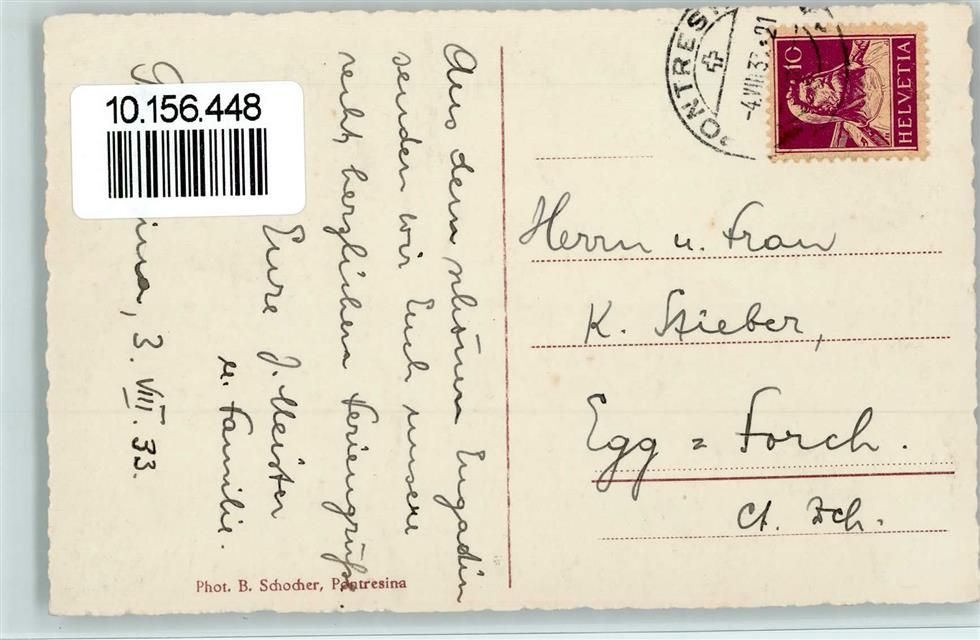 10.156.448
Aus dem schönen Engadin
senden wir Euch unsere
recht herzlichen Feriengrüße.
Eure J. Meister
u. Familie.
3. VIII. 33.
PONTRES
-4.VIII.33-21
10
HELVETIA
Herrn u. Frau
K. Stieber,
Egg = Forch.
Ct. Zch.
Phot. B. Schocher, Pontresina